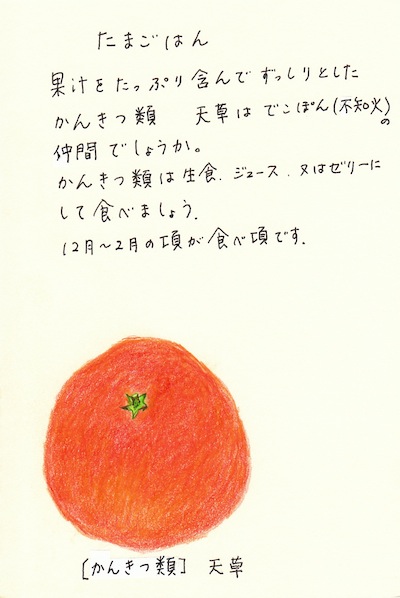 たまごはん
果汁をたっぷり含んでずっしりとした
かんきつ類　天草はでこぽん(不知火)の
仲間でしょうか。
かんきつ類は生食、ジュース、又はゼリーに
して食べましょう。
12月〜2月の項が食べ頃です。
[かんきつ類]　天草